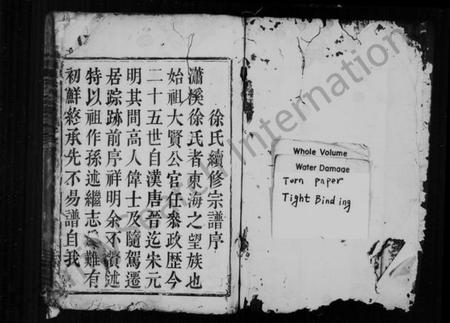 徐氏續修宗譜序
瀟溪徐氏者東海之望族也
始祖大賢公官任叅政歴今
二十五世自漢唐晉迄朱元
明其間高人偉士及隨駕遷
居踪跡前序祥明余不瀆述
特以祖作孫述繼志難有
初鮮終承先不易譜自我
Whole Volume
Water Damage
Torn paper
Tight Binding